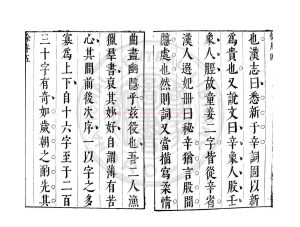 也漢志曰悉新于辛詞固以新
為貴也又說文曰辛象人股壬
象人脛故童妾二字皆從辛省
漢人選妃冊曰秘辛猶言股間
隱處也然則詞又當描寫柔情
曲盡幽隱乎茲役也吾二人漁
獵羣書裒其妙好自謂薄有苦
心其間前後次序一以字之多
寡為上下自十六字至于二百
三十字有奇如歲朝之酌先其